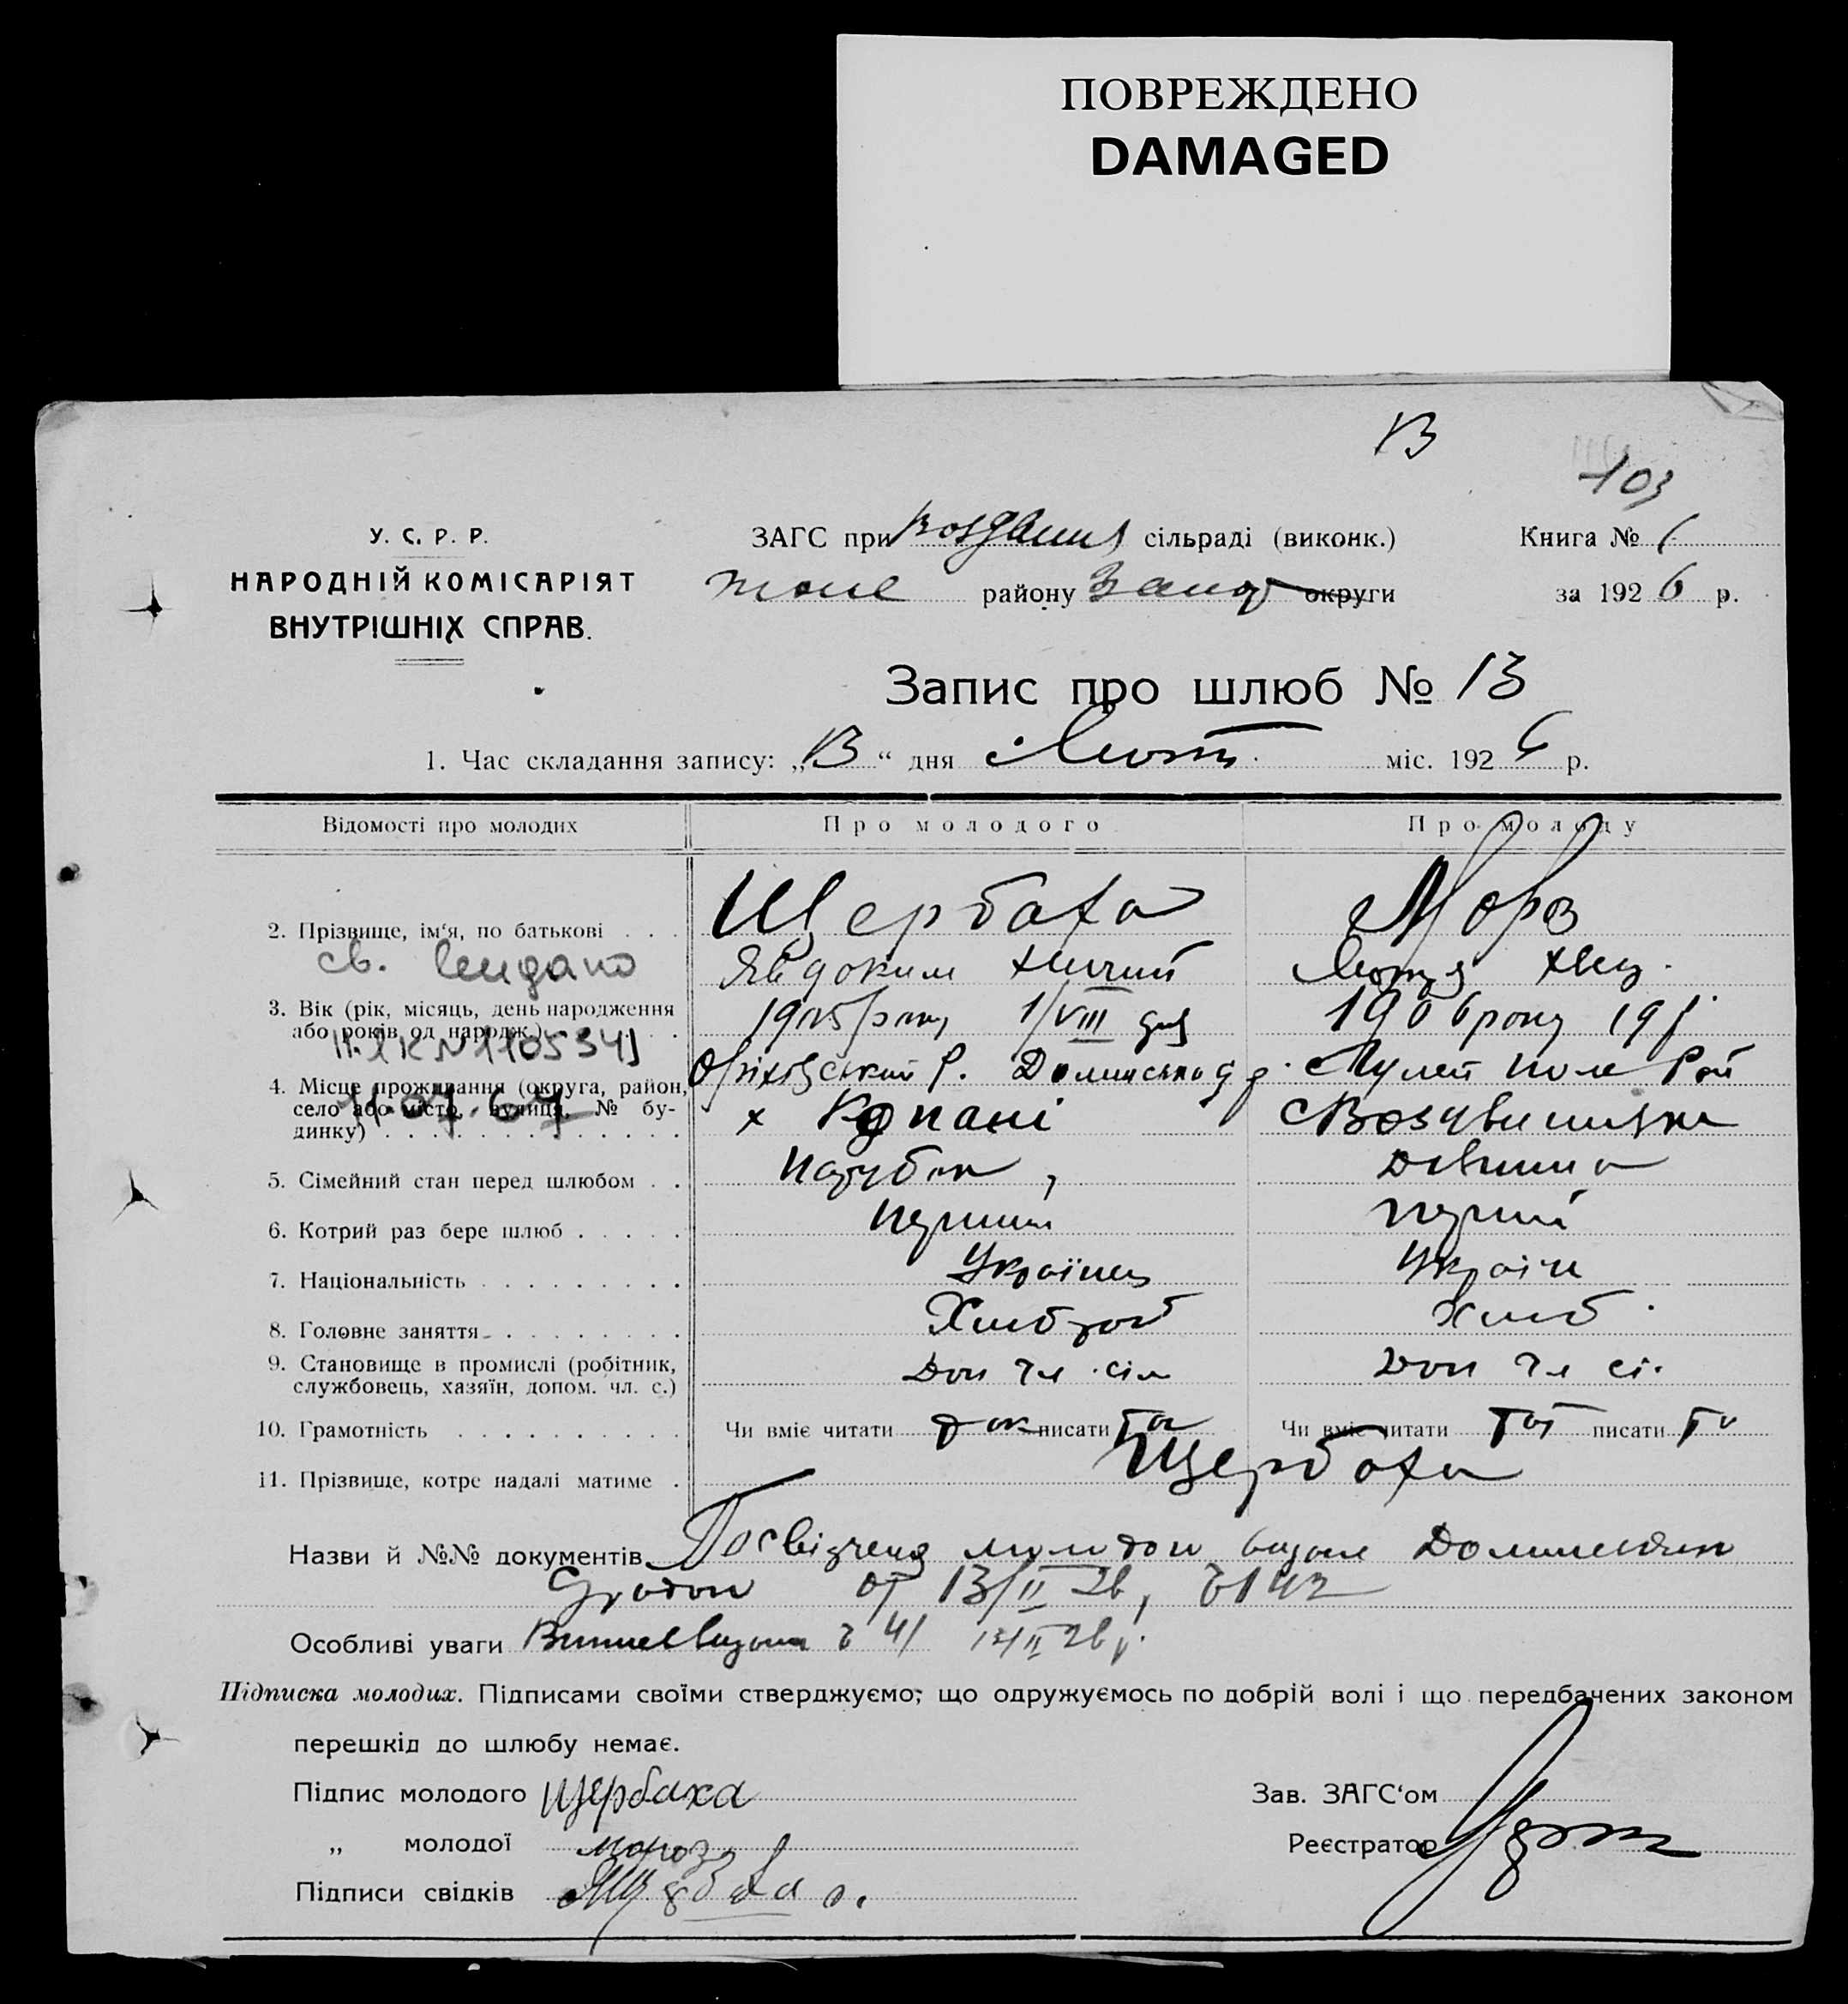 ПОВРЕЖДЕНО
DAMAGED
13
103
У. С. Р. Р.
НАРОДНІЙ КОМІСАРІЯТ
ВНУТРІШНІХ СПРАВ.
ЗАГС при сільраді (виконк.)
Книга № 1
району Запор округи
за 1926 р.
Запис про шлюб № 13
1. Час складання запису: „13“ дня Лют. міс. 1926 р.
Відомості про молодих
Про молодого
Про молоду
2. Прізвище, ім'я, по батькові
Щербаха
Мороз
св. видано
Явдоким
3. Вік (рік, місяць, день народження або років од народж.)
1905 року 1/VIII дня
1906 року 19 р.
11.07.67
4. Місце проживання (округа, район, село або місто, вулиця, № будинку)
Оріхівський р. Долинської
Гуляй Поле Рай
х Копані
С Воздвиживка
5. Сімейний стан перед шлюбом
Парубок
Дівчина
6. Котрий раз бере шлюб
Перший
перший
7. Національність
Українець
Україн
8. Головне заняття
Хлібороб
Хліб.
9. Становище в промислі (робітник, службовець, хазяїн, допом. чл. с.)
Доп чл. сім
Доп чл сі.
10. Грамотність
Чи вміє читати так писати та
Чи вміє читати так писати та
11. Прізвище, котре надалі матиме
Щербаха
Назви й №№ документів Посвідченя молодои видане Долинським
Сработи от 13/II 26, ч 142
Особливі уваги ч 41 13/II 26 р.
Підписка молодих. Підписами своїми стверджуємо; що одружуємось по добрій волі і що передбачених законом
перешкід до шлюбу немає.
Підпис молодого Щербаха
Зав. ЗАГС'ом
„ молодої мороз
Реєстратор
Підписи свідків